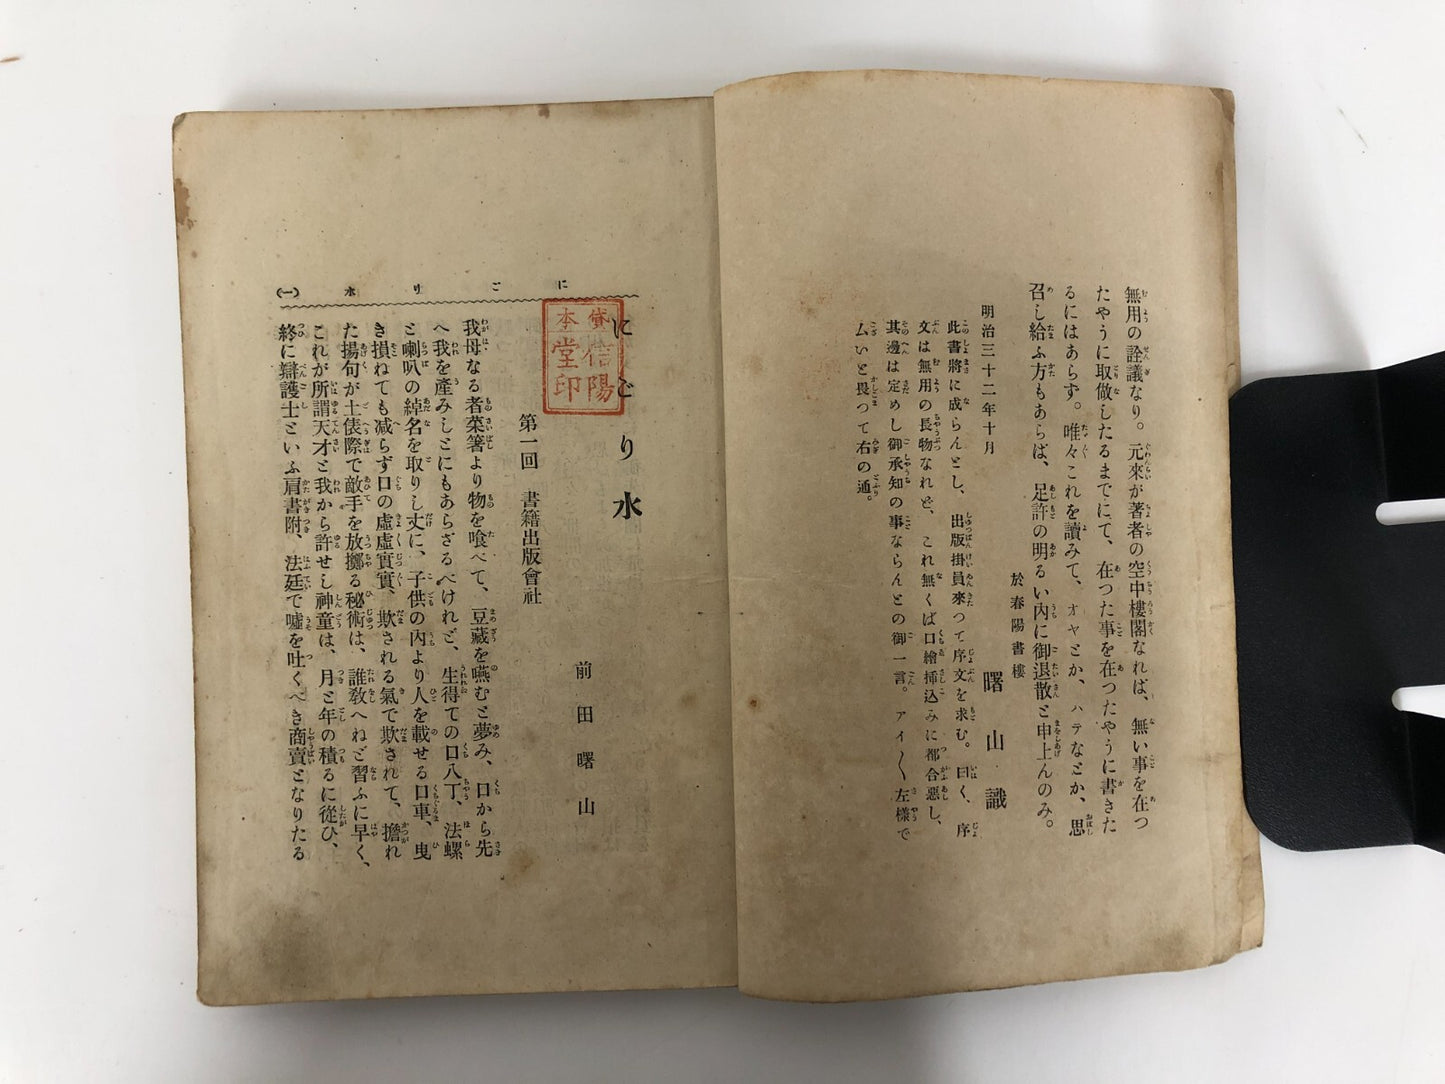 無用の詮議なり。元來が著者の空中樓閣なれば、無い事を在つ
たやうに取做したるまでにて、在つた事を在つたやうに書きた
るにはあらず。唯々これを讀みて、オヤとか、ハテなとか、思
召し給ふ方もあらば、足許の明るい內に御退散と申上んのみ。
於春陽書樓
曙山識
明治三十二年十月
此書將に成らんとし、出版掛員來つて序文を求む。曰く、序
文は無用の長物なれど、これ無くば口繪挿込みに都合惡し、
其邊は定めし御承知の事ならんとの御一言。アイ〱左樣で
厶いと畏つて右の通。
にごり水
(一)
にごり水
貸本
信陽堂印
前田曙山
第一回 書籍出版會社
我母なる者菜箸より物を喰べて、豆藏を嚥むと夢み、口から先
へ我を產みしとにもあらざるべけれど、生得ての口八丁、法螺
と喇叭の綽名を取りし丈に、子供の內より人を載せる口車、曳
き損ねても减らず口の虛虛實實、欺される氣で欺されて、擔れ
た揚句が土俵際で敵手を放擲る秘術は、誰敎へねど習ふに早く、
これが所謂天才と我から許せし神童は、月と年の積るに從ひ、
終に辯護士といふ肩書附、法廷で噓を吐くべき商賣となりたる